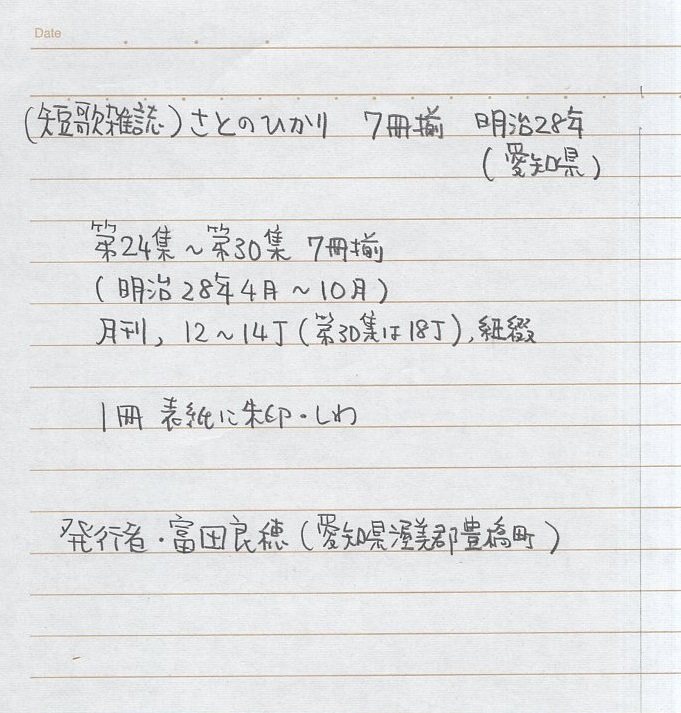 Date
(短歌雑誌)さとのひかり 7冊揃 明治28年
(愛知県)
第24集～第30集 7冊揃
(明治28年4月～10月)
月刊, 12～14丁(第30集は18丁), 紐綴
1冊 表紙に朱印・しわ
発行者・富田良穂(愛知県渥美郡豊橋町)